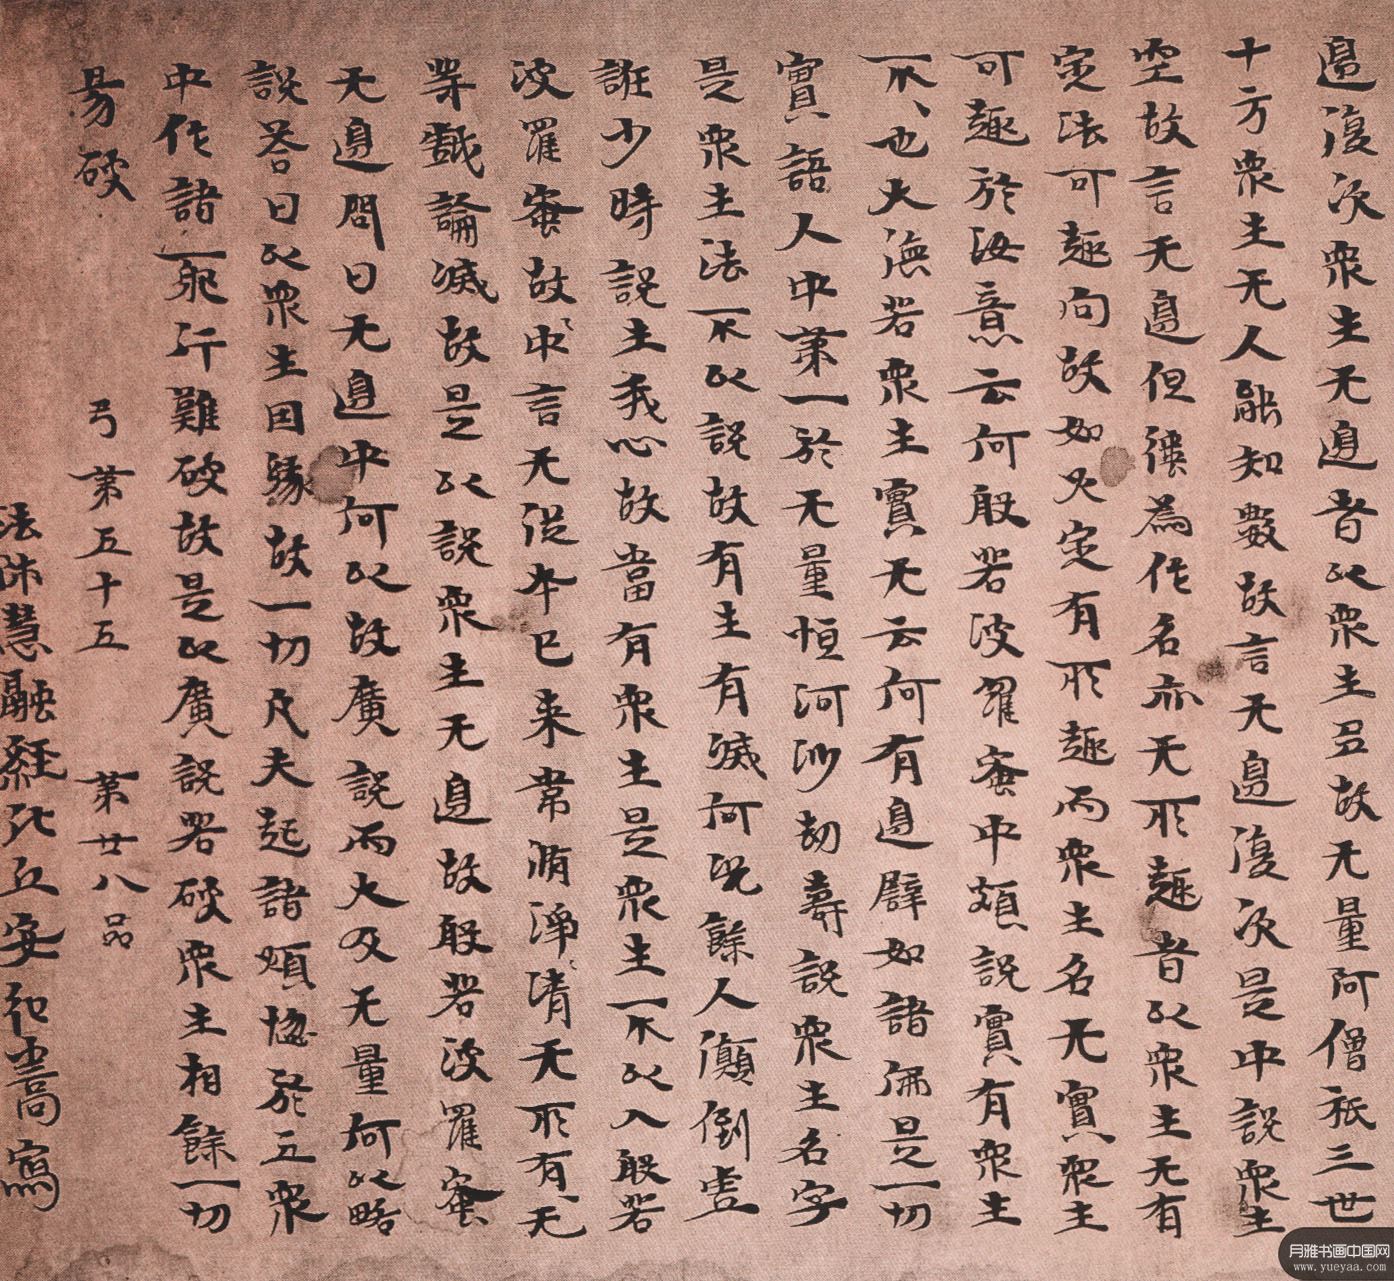 邊復次眾生无邊者以眾生多故无量阿僧祇三世
十方眾生无人能知數故言无邊復次是中說眾生
空故言无邊但彊為作名亦无所趣者以眾生无有
定法可趣向故如火定有所趣而眾生名无實眾生
可趣於汝意云何般若波羅蜜中頗說實有眾生
不不也大德若眾生實无云何有邊譬如諸佛是一切
實語人中第一於无量恒河沙劫壽說眾生名字
是眾生法不以說故有生有滅何況餘人顛倒虛
誑少時說生我心故當有眾生是眾生不以入般若
波羅蜜故中言无從本已來常清淨清无所有无
等戲論滅故是以說眾生无邊故般若波羅蜜
无邊問曰无邊中何以故廣說而大及无量何以略
說答曰以眾生因緣故一切凡夫起諸煩惱於五眾
中作諸一耶行難破故是以廣說若破眾生相餘一切
易破
弓第五十五 第廿八品
法師慧融經比丘安弘嵩寫
月雅书画中国网
www.yueyaa.com